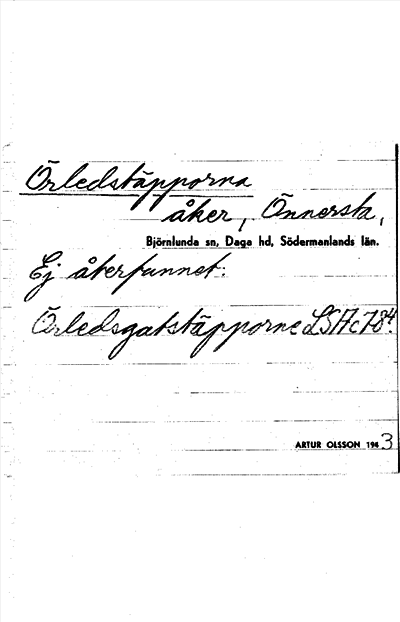 Örledstäpporna
åker, Önnersta,
Björnlunda sn, Daga hd, Södermanlands län.
Ej återfunnet:
Örledsgatstäpporne LSA C 7:84.
ARTUR OLSSON 1943